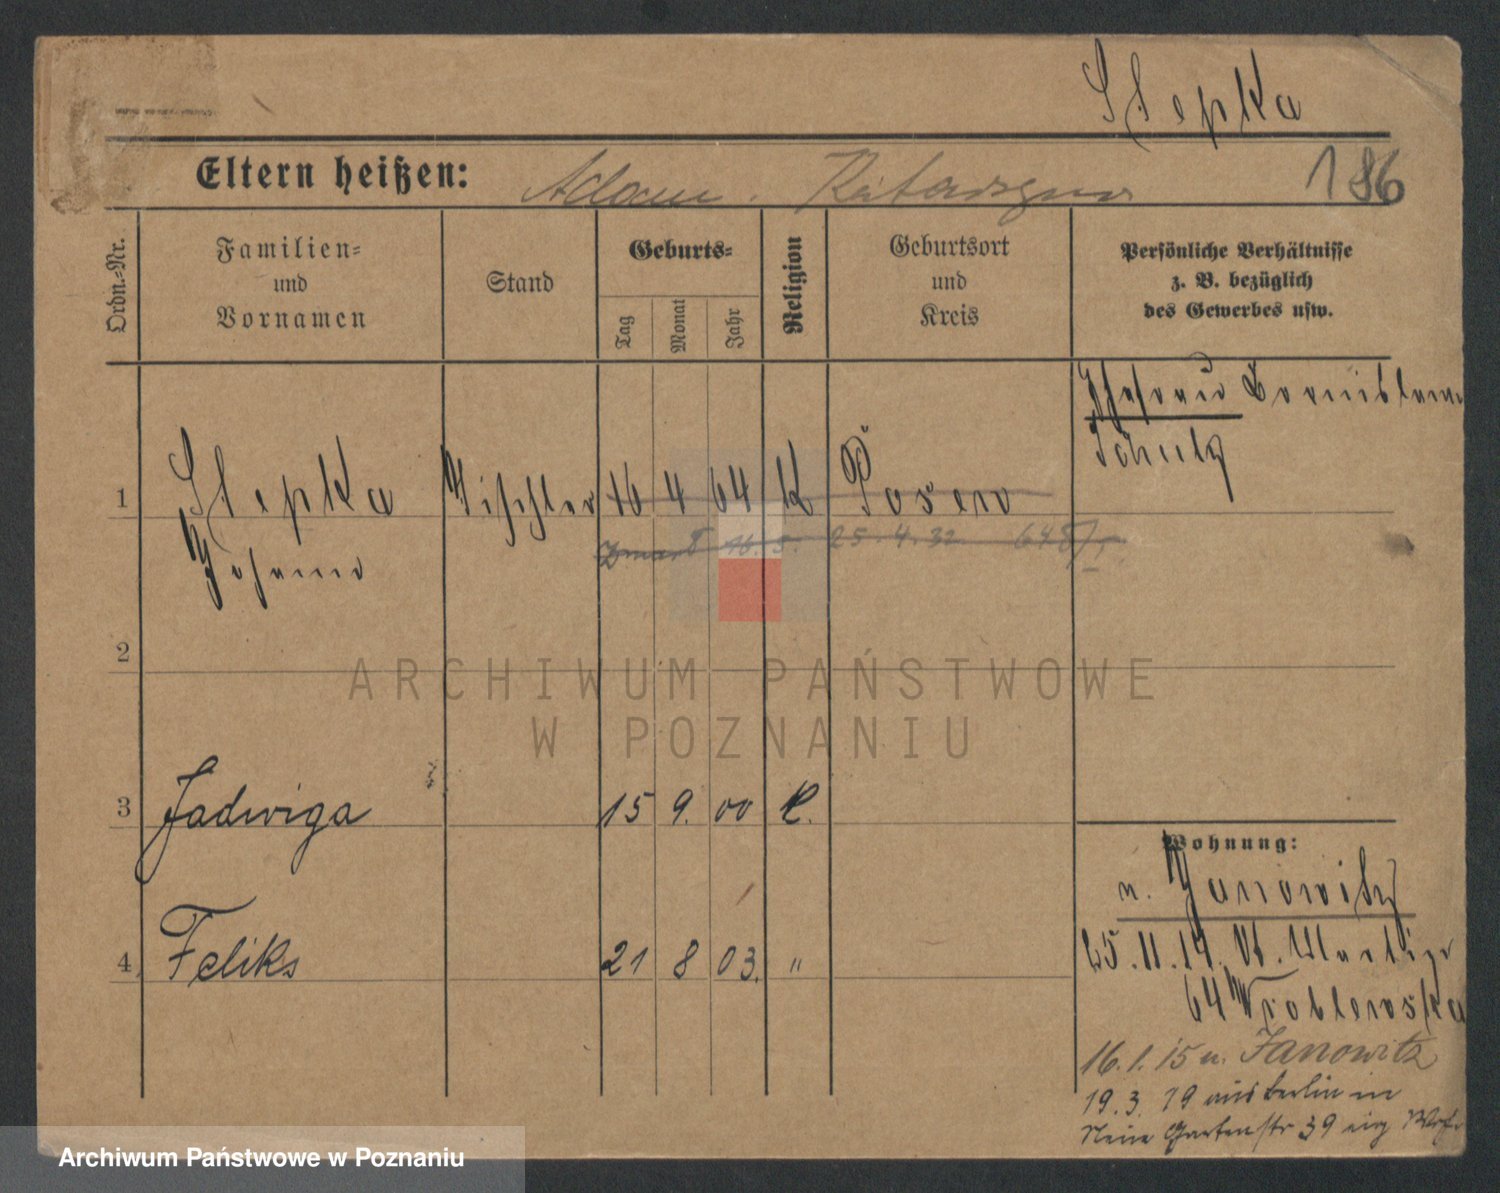 Stepka
Eltern heißen: Adam. Katarzyna
186
Ordn.-Nr.
Familien-
und
Vornamen
Stand
Geburts-
Tag
Monat
Jahr
Religion
Geburtsort
und
Kreis
Persönliche Verhältnisse
z. B. bezüglich
des Gewerbes usw.
Ehefrau
Schulz
1 Stepka Tischler 16 4 64 K Posen
Johann
25.4.32
2
3 Jadwiga 15 9. 00 K.
4 Feliks 21 8 03. "
Wohnung:
n. Janowitz
25.11.14. St. Martinstr
64 Wroblewska
16.1.15 n. Janowitz
19.3.19 aus Berlin in
Neue Gartenstr 39 eig
ARCHIWUM PAŃSTWOWE
W POZNANIU
Archiwum Państwowe w Poznaniu